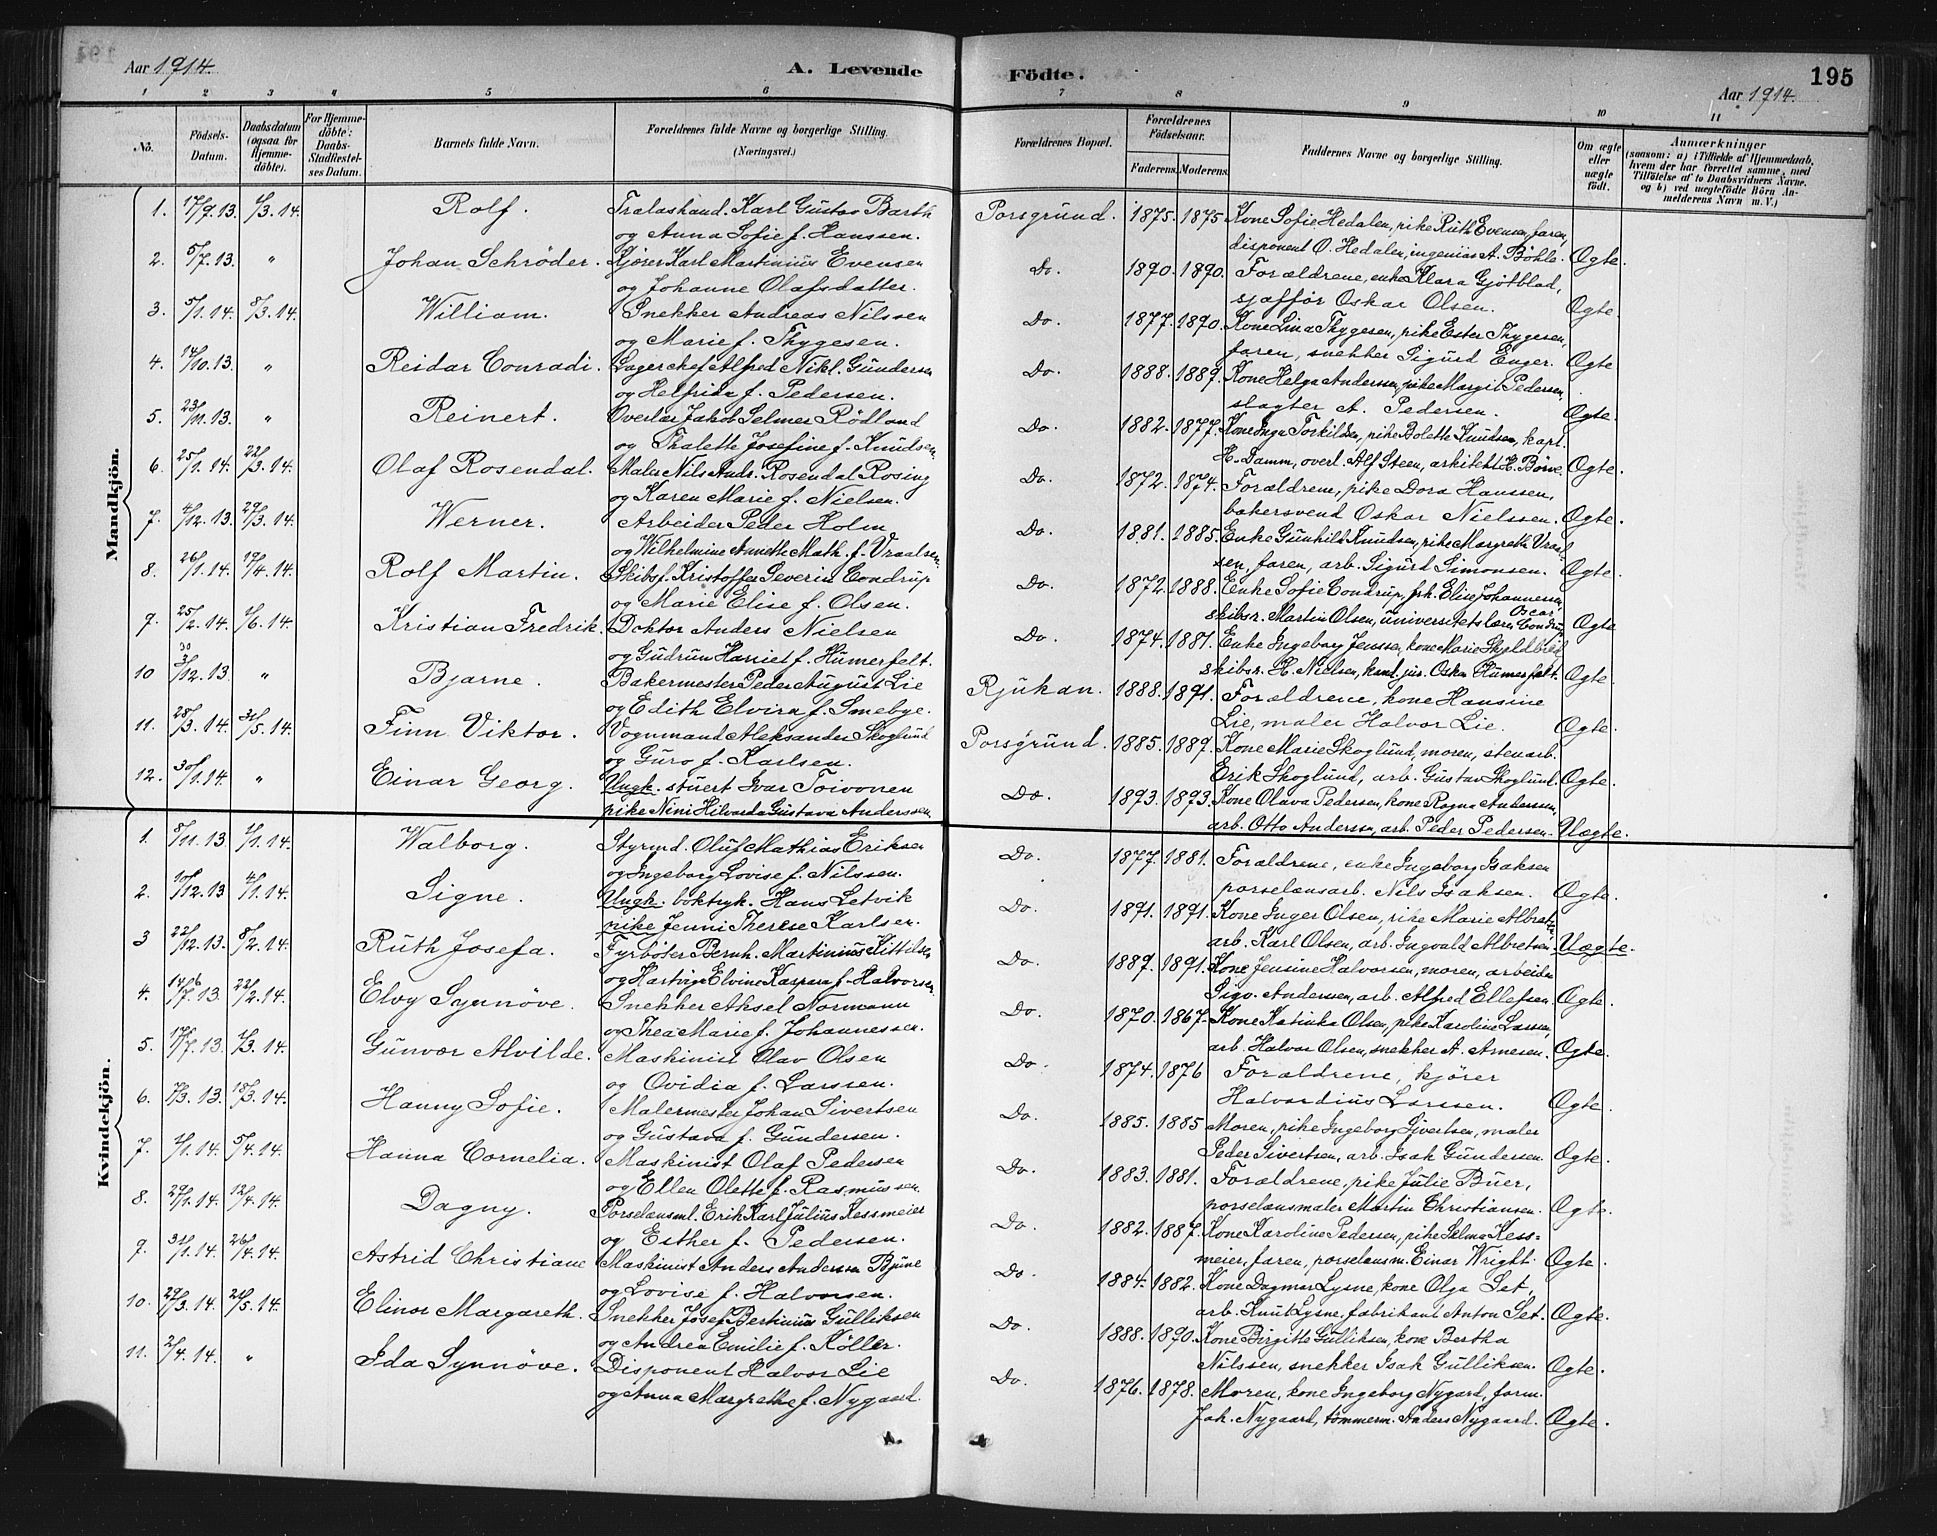 Aar 1914. A. Levende Födte. Aar 1914. 195
1 2 3 4 5 6 7 8 9 10 11
No. Födsels-Datum. Daabsdatum (ogsaa for Hjemme-döbte). For Hjemme-döbte: Daabs-Stadfæstel-ses Datum. Barnets fulde Navn. Forældrenes fulde Navne og borgerlige Stilling. (Næringsvei.) Forældrenes Bopæl. Forældrenes Födselsaar. Faderens. Moderens. Faddernes Navne og borgerlige Stilling. Om ægte eller uægte födt. Anmærkninger (saasom: a) i Tilfælde af Hjemmedaab, hvem der har forrettet samme, med Tilföielse af to Daabsvidners Navne, og b) ved uægtefödte Börn An-melderens Navn m. V.)
Mandkjön.
1. 17/9.13. 1/3.14. Rolf. Tralashand. Karl Gustav Barth Porsgrund. 1875. 1875. Kone Sofie Hedalen, pike Ruth Evensen, faren,
og Anna Sofie f. Hanssen. disponent O. Hedalen, ingeniör A. Böhle. Ægte.
2. 5/7.13. " Johan Schröder. Kjörer Karl Martinius Evensen Do. 1890. 1890. Forældrene, enke Klara Gjötblad,
og Johanne Olafsdatter. sjafför Oskar Olsen. Ægte.
3. 5/1.14. 8/3.14. William. Snekker Andreas Nilssen Do. 1877. 1890. Kone Lina Thygesen, pike Ester Thygesen,
og Marie f. Thygesen. faren, snekker Sigurd Enger. Ægte
4. 14/10.13. " Reidar Conradi. Lagerchef Alfred Nikl. Gundersen Do. 1888. 1889. Kone Helga Andersen, pike Margit Pedersen,
og Helfrida f. Pedersen. slagter A. Pedersen. Ægte.
5. 23/11.13. " Reinert. Overlær. Jakob Selmer Rödland Do. 1882. 1877. Kone Inga Torkildsen, pike Bolette Knudsen, kapt.
og Thalette Josefine f. Knudsen. H. Damm, overl. Alf Steen, arkitekt H. Börve. Ægte.
6. 25/1.14. 22/3.14. Olaf Rosendal. Maler Nils Andr. Rosendal Rosing Do. 1872. 1874. Forældrene, pike Dora Hanssen,
og Karen Marie f. Nielsen. bakersvend Oskar Nielssen. Ægte.
7. 4/12.13. 29/3.14. Werner. Arbeider Peder Holm Do. 1881. 1885. Enke Gunhild Knudsen, pike Margrethe Vraal
og Wilhelmine Annette Math. f. Vraalsen. sen, faren, arb. Sigurd Simonsen. Ægte.
8. 26/1.14. 19/4.14. Rolf Martin. Skibsf. Kristoffer Severin Condrup Do. 1872. 1888. Enke Sofie Condrup, frk. Elise Johannessen,
og Marie Elise f. Olsen. skibsr. Martin Olsen, universitetslærer Oscar Condrup Ægte
9. 25/2.14. 1/6.14. Kristian Fredrik. Doktor Anders Nielsen Do. 1874. 1881. Enke Ingeborg Jenssen, kone Marie Skyldblid
og Gudrun Harriet f. Humerfelt. skibsr. H. Nielsen, kand. jur. Oskar Humerfelt. Ægte.
10 30/12.13. " Bjarne. Bakermester Peder August Lie Rjukan. 1888. 1891. Forældrene, kone Hansine
og Edith Elvira f. Smebye. Lie, maler Halvor Lie. Ægte.
11. 28/3.14. 31/5.14. Finn Viktor. Vognmand Aleksander Skoglund Porsgrund. 1885. 1889. Kone Marie Skoglund, moren, stenarb.
og Guro f. Karlsen. Erik Skoglund, arb. Gustav Skoglund. Ægte.
12. 30/1.14. " Einar Georg. Ungk. stuert Ivar Toivonen Do. 1893. 1893. Kone Olava Pedersen, kone Ragna Andersen,
pike Nini Hilvarda Gustava Anderssen. arb. Otto Andersen, arb. Peder Pedersen. Uægte.
Kvindekjön.
1. 8/11.13 1/1.14. Walborg. Styrmd. Oluf Mathias Eriksen Do. 1877. 1881. Forældrene, enke Ingeborg Isaksen
og Ingeborg Lovise f. Nilssen. porselænsarb. Nils Isaksen. Ægte.
2. 10/12.13 4/1.14. Signe. Ungk. boktryk. Hans Letvik Do. 1891. 1891. Kone Inger Olsen, pike Marie Albretsen,
pike Jenni Therese Karlsen. arb. Karl Olsen, arb. Ingvald Albretsen. Uægte.
3 22/12.13. 8/2.14. Ruth Josefa. Fyrböter Bernh. Martinius Kittilsen Do. 1889. 1891. Kone Jensine Halvorsen, moren, arbeider
og Hartvige Elvine Kaspara f. Halvorsen. Sigv. Andersen, arb. Alfred Ellefsen. Ægte.
4. 14/7.13. 22/2.14. Elvy Synnöve. Snekker Aksel Normann Do. 1870. 1867. Kone Katinka Olsen, pike Karoline Larsen,
og Thea Marie f. Johannessen. arb. Halvor Olsen, snekker A. Arnesen. Ægte.
5. 17/7.13. 1/3.14. Gunvor Alvilde. Maskinist Olav Olsen Do. 1874. 1876 Forældrene, kjörer
og Ovidia f. Larssen. Halvardius Larssen. Ægte.
6. 7/3.13. 18/3.14. Hanny Sofie. Malermester Johan Sivertsen Do. 1885. 1885 Moren, pike Ingeborg Sivertsen, maler
og Gustava f. Gundersen. Peder Sivertsen, arb. Isak Gundersen. Ægte.
7. 1/1.14. 5/4.14. Hanna Cornelia. Maskinist Olaf Pedersen Do. 1883. 1881. Forældrene, pike Julie Buer,
og Ellen Olette f. Rasmussen. porselænsmaler Martin Christiansen. Ægte.
8. 29/1.14. 12/4.14 Dagny. Porselænsml. Erik Karl Julius Kessmeier Do. 1882. 1887. Kone Karoline Pedersen, pike Selma Kess=
og Esther f. Pedersen. meier, faren, porselænsm. Einar Wright. Ægte.
9. 31/1.14. 26/4.14. Astrid Christiane Maskinist Anders Andersen Bjune Do. 1884. 1882. Kone Dagmar Lysne, kone Olga Set,
og Lovise f. Halvorsen. arb. Knut Lysne, fabrikant Anton Set. Ægte.
10. 29/3.14. 21/5.14. Elinor Margareth. Snekker Josef Bertinius Gulliksen Do. 1888. 1890. Kone Birgitte Gulliksen, kone Bertha
og Andrea Emilie f. Köller. Nilssen, snekker Isak Gulliksen. Ægte.
11. 2/4.14. " Ida Synnöve. Disponent Halvor Lie Do. 1876. 1878. Moren, kone Ingeborg Nygård, form.
og Anna Margrethe f. Nygaard. Joh. Nygaard, tömmerm. Anders Nygaard. Ægte.